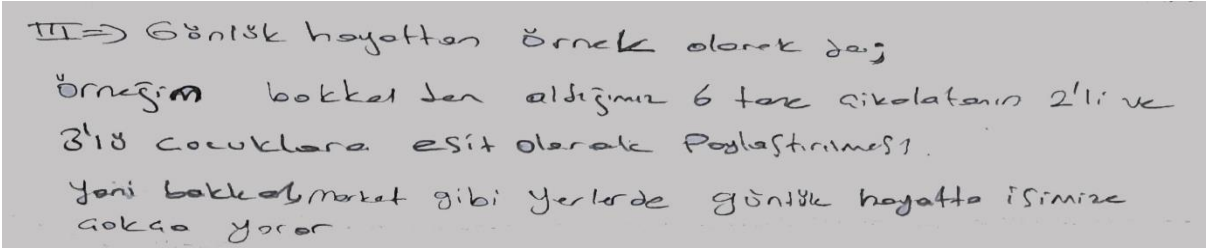 III => Günlük hayattan örnek olarak da;
örneğin bakkal dan aldığımız 6 tane çikolatanın 2'li ve
3'lü çocuklara eşit olarak Paylaştırılması.
Yani bakkal, market gibi yerlerde günlük hayatta işimize
çokça yarar